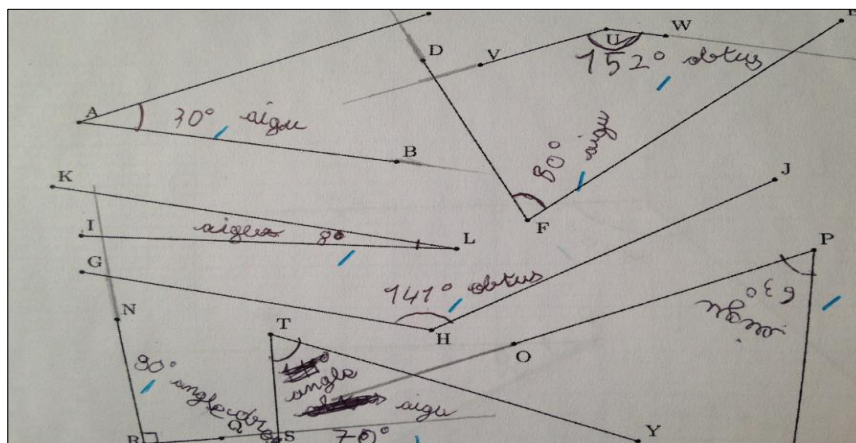 D
V
U
W
152° obtus
A
30° aigu
B
80° aigu
F
K
I
aigu 8°
L
J
G
141° obtus
H
P
63°
aigu
N
T
O
90° angle droit
angle
aigu
Q
S
70°
Y